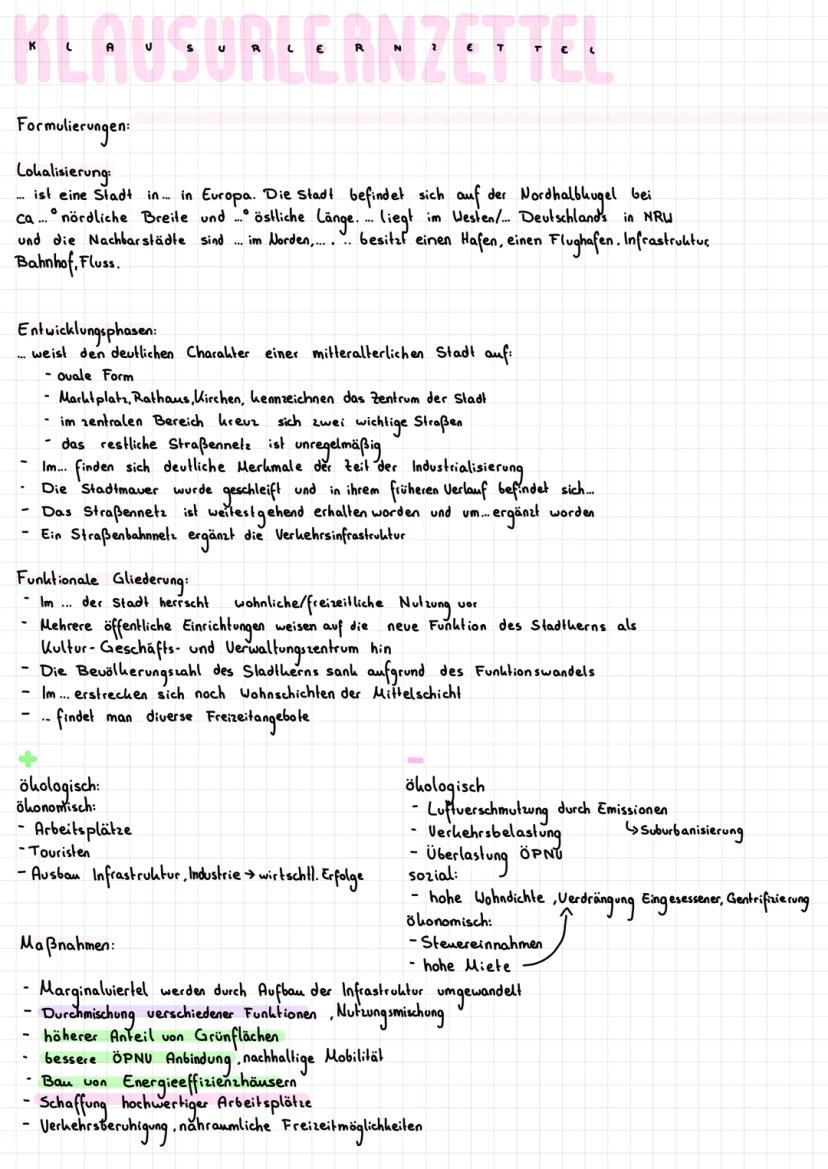 KLAUSURLERNZETTEL
K L A U S U R L E R N Z E T T E L
Formulierungen:
Lokalisierung:
... ist eine Stadt in ... in Europa. Die Stadt befindet sich auf der Nordhalbkugel bei
ca ...° nördliche Breite und ...° östliche Länge. ... liegt im Westen/... Deutschlands in NRW
und die Nachbarstädte sind ... im Norden,... . .. besitzt einen Hafen, einen Flughafen. Infrastruktur,
Bahnhof, Fluss.
Entwicklungsphasen:
... weist den deutlichen Charakter einer mitteralterlichen Stadt auf:
- ovale Form
- Marktplatz, Rathaus, Kirchen, kennzeichnen das Zentrum der Stadt
- im zentralen Bereich kreuz sich zwei wichtige Straßen
- das restliche Straßennetz ist unregelmäßig
- Im... finden sich deutliche Merkmale der Zeit der Industrialisierung
- Die Stadtmauer wurde geschleift und in ihrem früheren Verlauf befindet sich...
- Das Straßennetz ist weitestgehend erhalten worden und um... ergänzt worden
- Ein Straßenbahnnetz ergänzt die Verkehrsinfrastruktur
Funktionale Gliederung:
- Im ... der Stadt herrscht wohnliche/freizeitliche Nutzung vor
- Mehrere öffentliche Einrichtungen weisen auf die neue Funktion des Stadtkerns als
Kultur- Geschäfts- und Verwaltungszentrum hin
- Die Bevölkerungszahl des Stadtkerns sank aufgrund des Funktionswandels
- Im ... erstrecken sich noch Wohnschichten der Mittelschicht
- ... findet man diverse Freizeitangebote
+
ökologisch:
ökonomisch:
- Arbeitsplätze
- Touristen
- Ausbau Infrastruktur, Industrie → wirtschtl. Erfolge
-
ökologisch
- Luftverschmutzung durch Emissionen
- Verkehrsbelastung ↳ Suburbanisierung
- Überlastung ÖPNV
sozial:
- hohe Wohndichte, Verdrängung Eingesessener, Gentrifizierung
ökonomisch:
- Steuereinnahmen
- hohe Miete
Maßnahmen:
- Marginalviertel werden durch Aufbau der Infrastruktur umgewandelt
- Durchmischung verschiedener Funktionen, Nutzungsmischung
- höherer Anteil von Grünflächen
- bessere ÖPNV Anbindung, nachhaltige Mobilität
- Bau von Energieeffizienzhäusern
- Schaffung hochwertiger Arbeitsplätze
- Verkehrsberuhigung, nahräumliche Freizeitmöglichkeiten